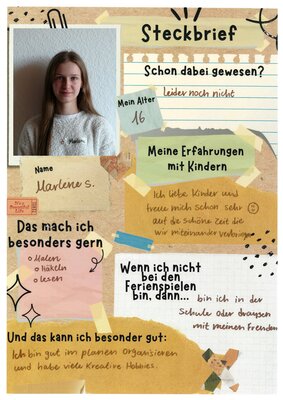 Steckbrief
Schon dabei gewesen?
Leider noch nicht
Mein Alter
16
Meine Erfahrungen
mit Kindern
Name
Marlene S.
Ich liebe Kinder und
freue mich schon sehr
auf die schöne Zeit die
wir miteinander verbringen
Das mach ich
besonders gern
Malen
häkeln
lesen
Wenn ich nicht
bei den
Ferienspielen
bin, dann...
bin ich in der
Schule oder draußen
mit meinen Freunden
Und das kann ich besonder gut:
Ich bin gut im planen organisieren
und habe viele Kreative Hobbies.